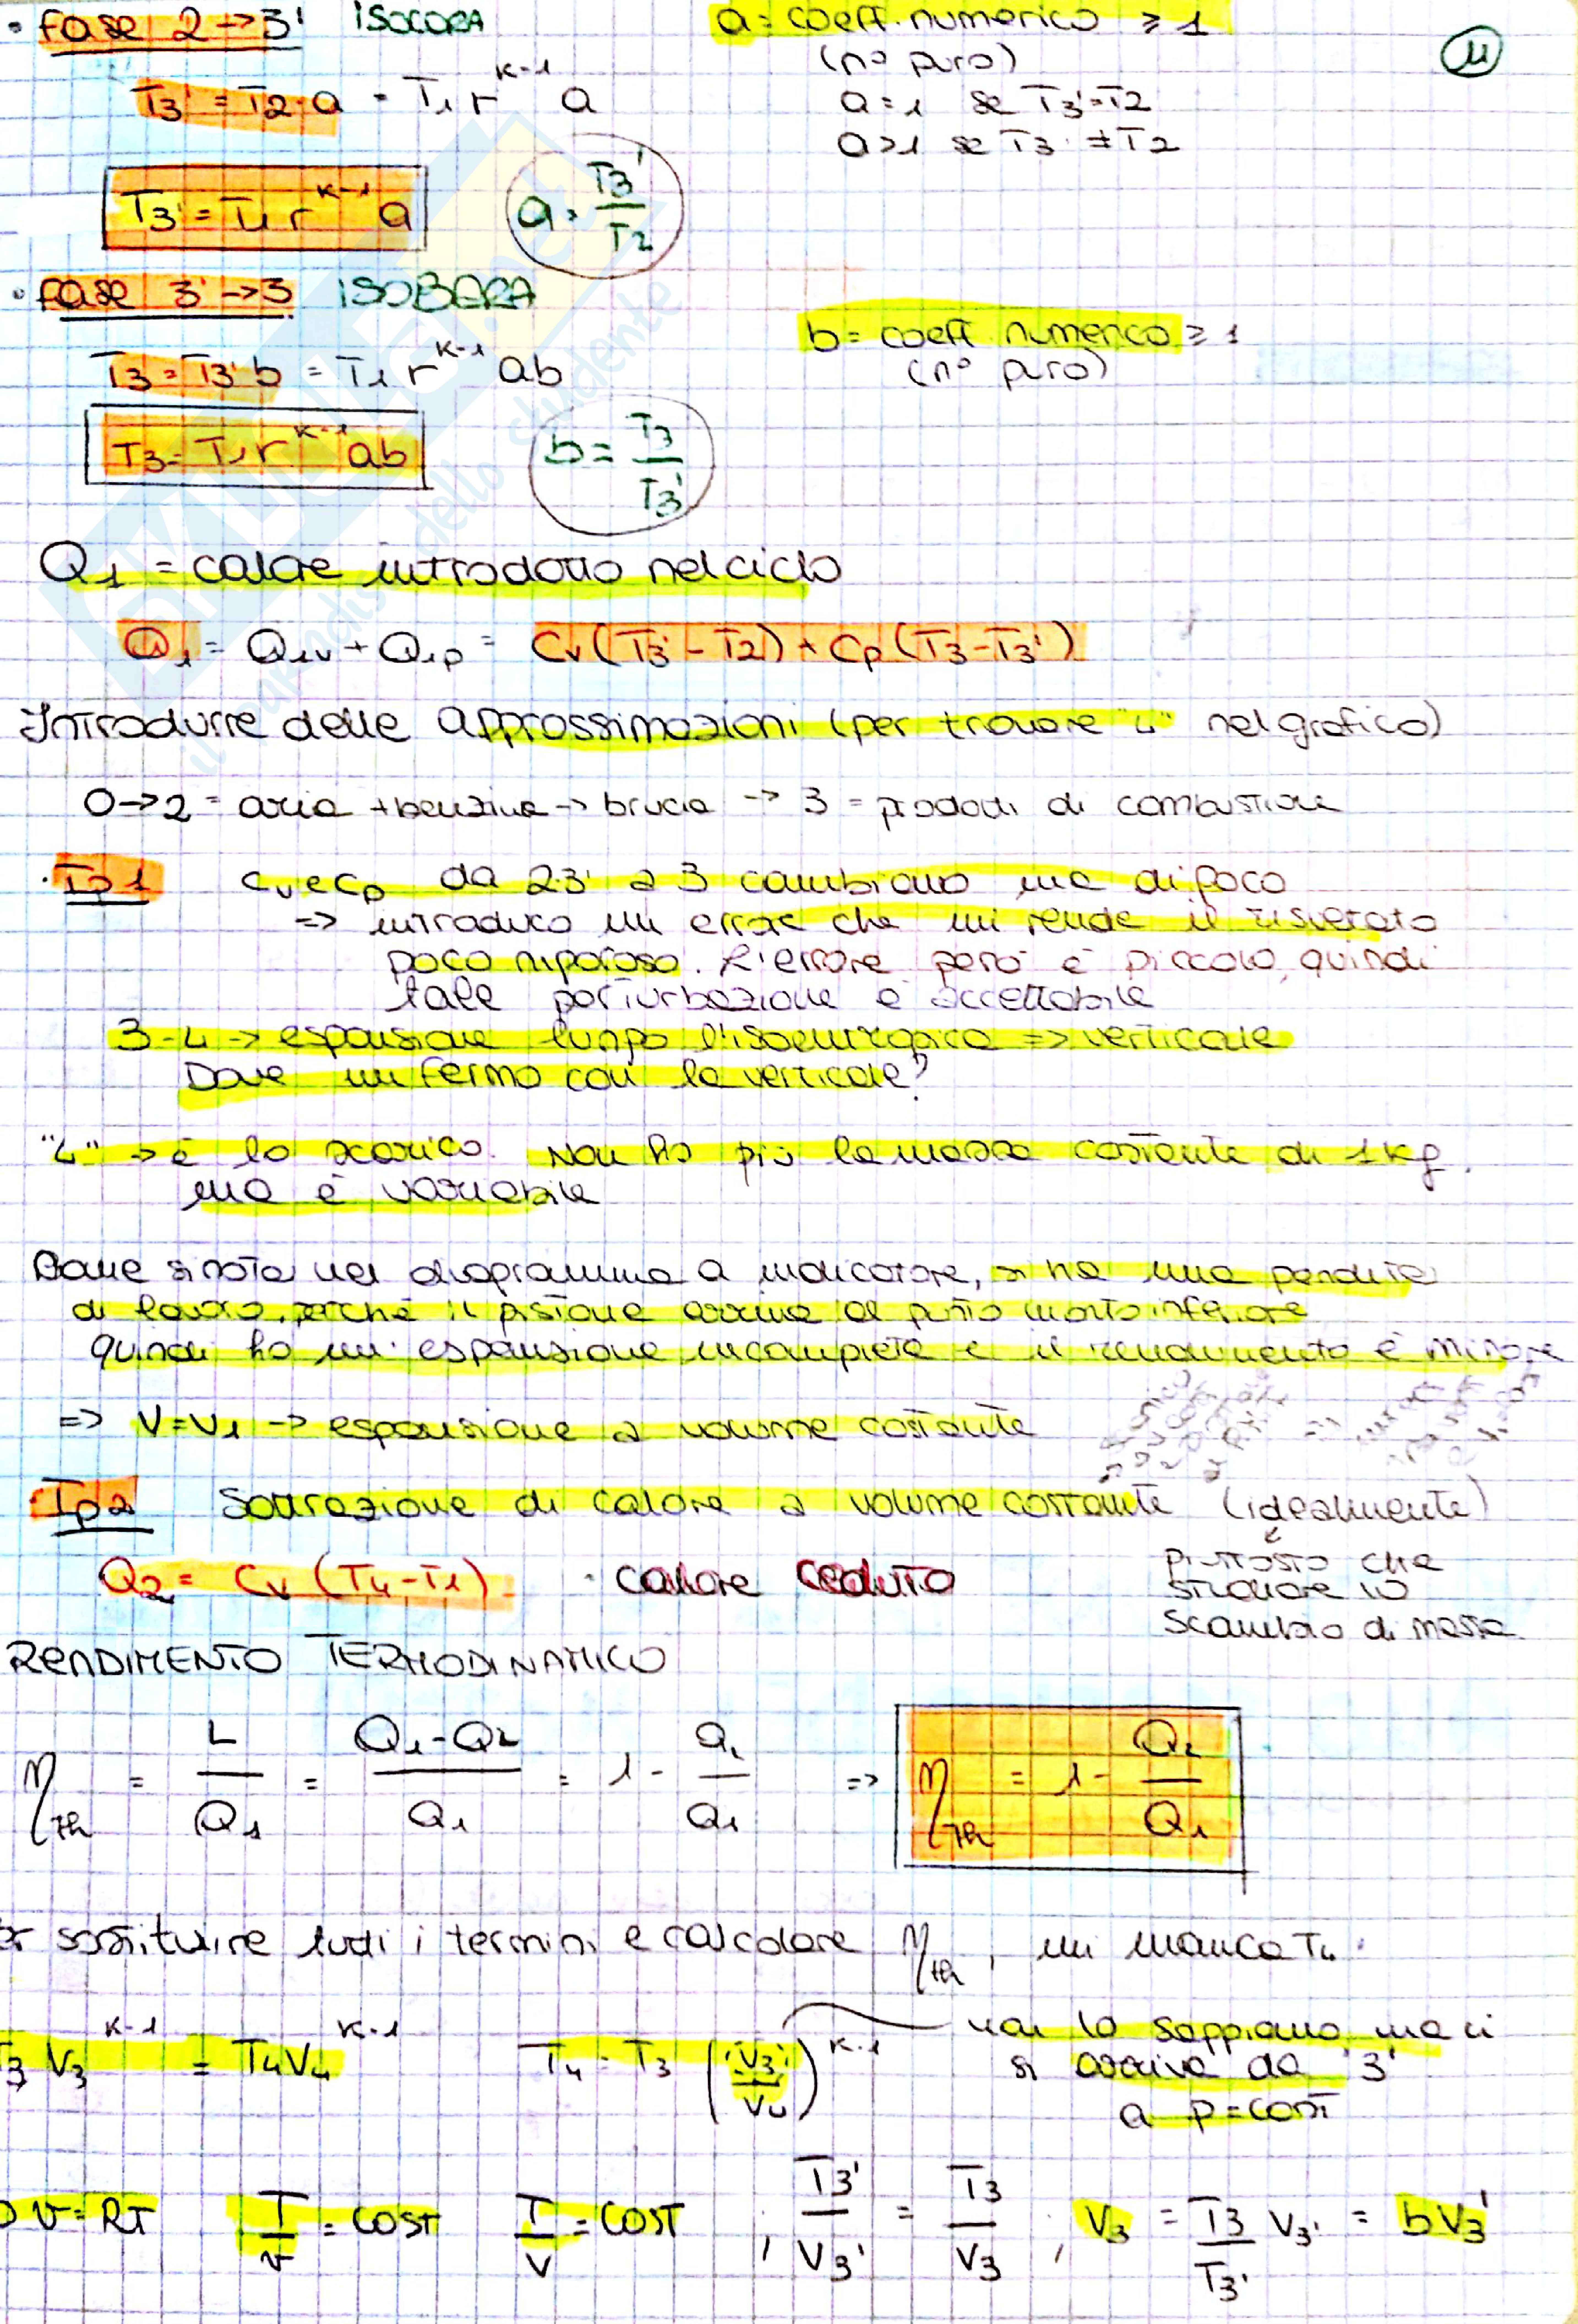 • fase 2→3' ISOCORA
a = coeff. numerico ≥ 1
(n° puro)
11
T3' = T2·a = T1 r^(K-1) a
a=1 se T3'=T2
a>1 se T3' ≠ T2
T3' = T1 r^(K-1) a
a = T3'/T2
• fase 3'→3 ISOBARA
b = coeff. numerico ≥ 1
(n° puro)
T3 = T3' b = T1 r^(K-1) ab
T3 = T1 r^(K-1) ab
b = T3/T3'
Q1 = calore introdotto nel ciclo
Q1 = Q1v + Q1p = Cv(T3'-T2) + Cp(T3-T3')
Introdurre delle approssimazioni (per trovare "4" nel grafico)
0→2 = aria + benzina → brucia → 3 = prodotti di combustione
• Ip1 cv e cp da 2 3' a 3 cambiano ma di poco
=> introduco un errore che mi rende il risultato
poco rigoroso. L'errore però è piccolo, quindi
tale perturbazione è accettabile
3-4 → espansione lungo l'isoentropica => verticale
Dove mi fermo con la verticale?
"4" → è lo scarico. Non ho più la massa costante di 1kg.
ma è variabile
Come si nota nel diagramma a indicatore, si ha una perdita
di lavoro, perché il pistone arriva al punto morto inferiore
quindi ho un' espansione incompleta e il rendimento è minore
=> V=V1 → espansione a volume costante
• Ip2 Sottrazione di calore a volume costante (idealmente)
piuttosto che
studiare lo
scambio di massa.
Q2 = Cv (T4-T1). • calore ceduto
RENDIMENTO TERMODINAMICO
ηth = L/Q1 = Q1-Q2/Q1 = 1 - Q2/Q1 => ηth = 1 - Q2/Q1
er sostituire tutti i termini e calcolare ηth, mi manca T4.
T3 V3^(K-1) = T4V4^(K-1)
T4 = T3 (V3/V4)^(K-1)
non lo sappiamo ma ci
si arriva da 3'
a p=cost
p v=RT T/v = COST T/V = COST ; T3'/V3' = T3/V3 ; V3 = T3/T3' V3' = bV3'